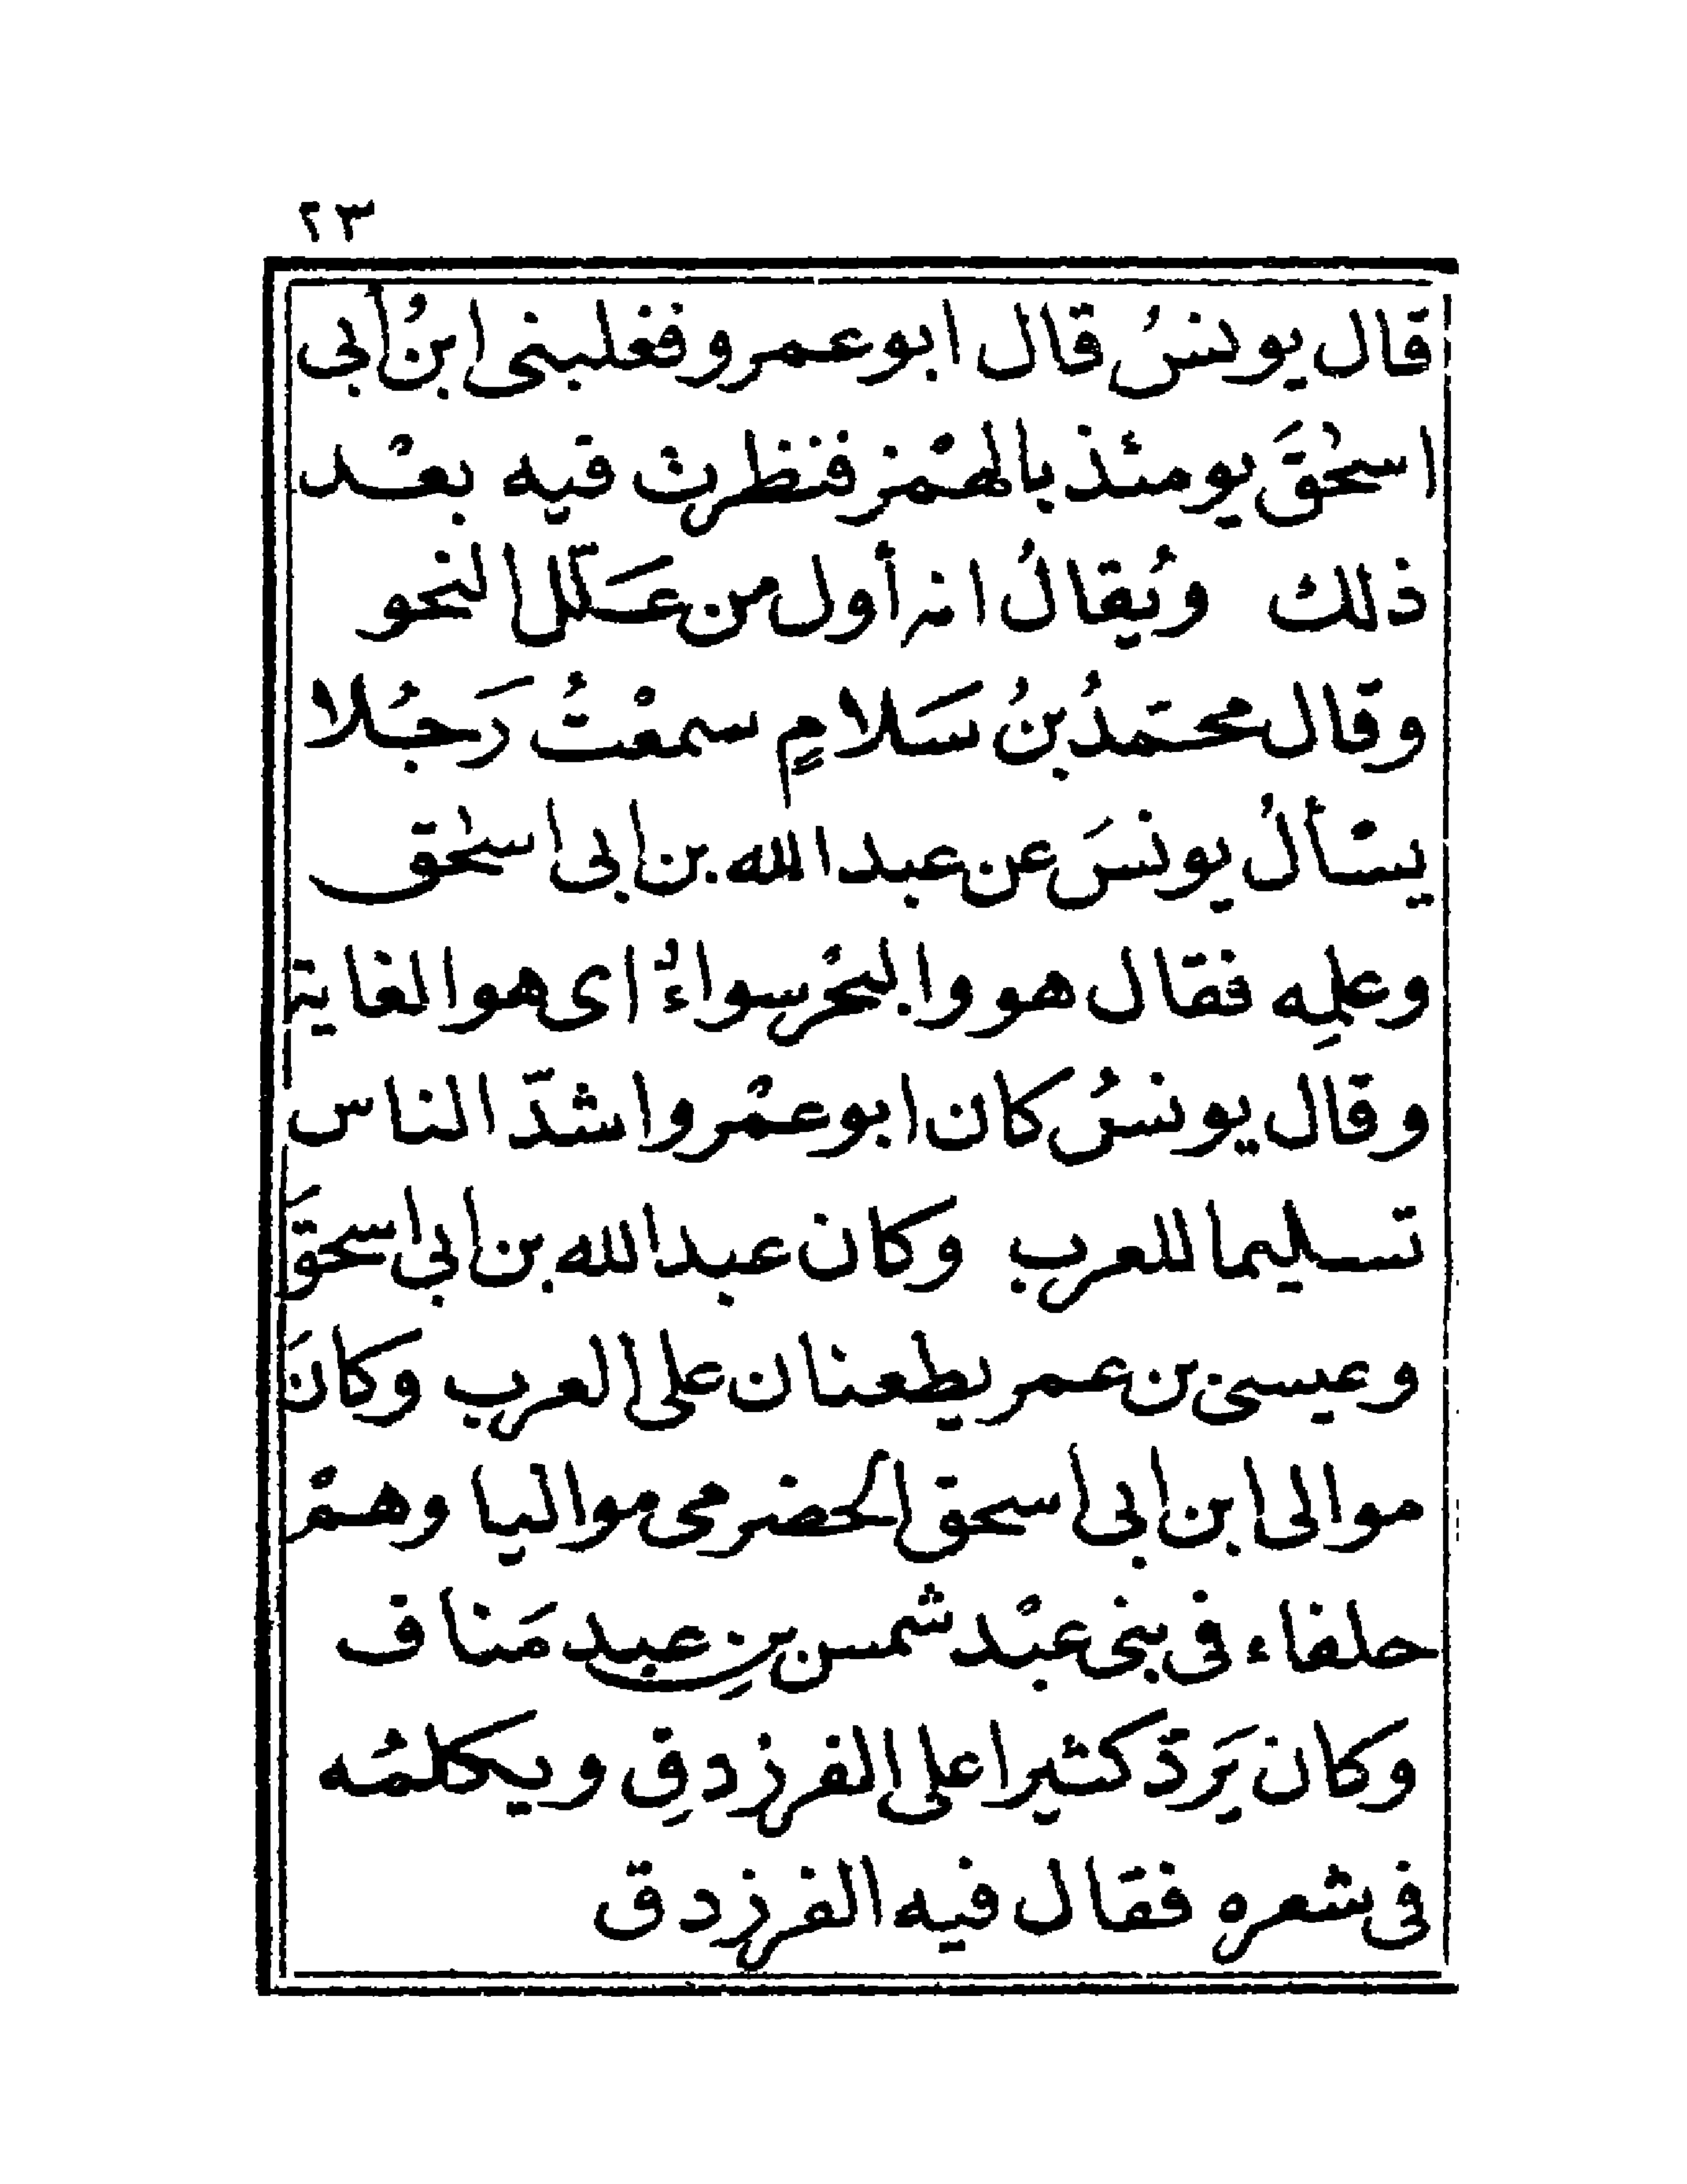 ٢٣
قال يونسُ قال ابو عمرو فغلبنى ابنُ أبى
اسحٰقَ يومئذ بالهمْز فنظرت فيه بعْد
ذلك ويُقالُ انه أول من عَلّل النحو
وقال محمَدُ بنُ سَلامٍ سمعْتُ رَجُلا
يسْألُ يونسَ عن عبد الله بن ابى اسحٰق
وعلمِه فقال هو والبحْر سواءٌ اى هو الغاية
وقال يونسُ كان ابو عمْرو اشدّ الناس
تسليما للعرب وكان عبد الله بن ابى اسحقَ
وعيسى بن عمر يطعنان على العرب وكانَ
موالى ابن ابى اسحق الحضرمى مواليا وهمْ
حلفاء فى بنى عبْد شمس بنِ عبد مَناف
وكان يَردّ كثيرا على الفرزدقِ ويكلمُه
فى شعره فقال فيه الفرزدق